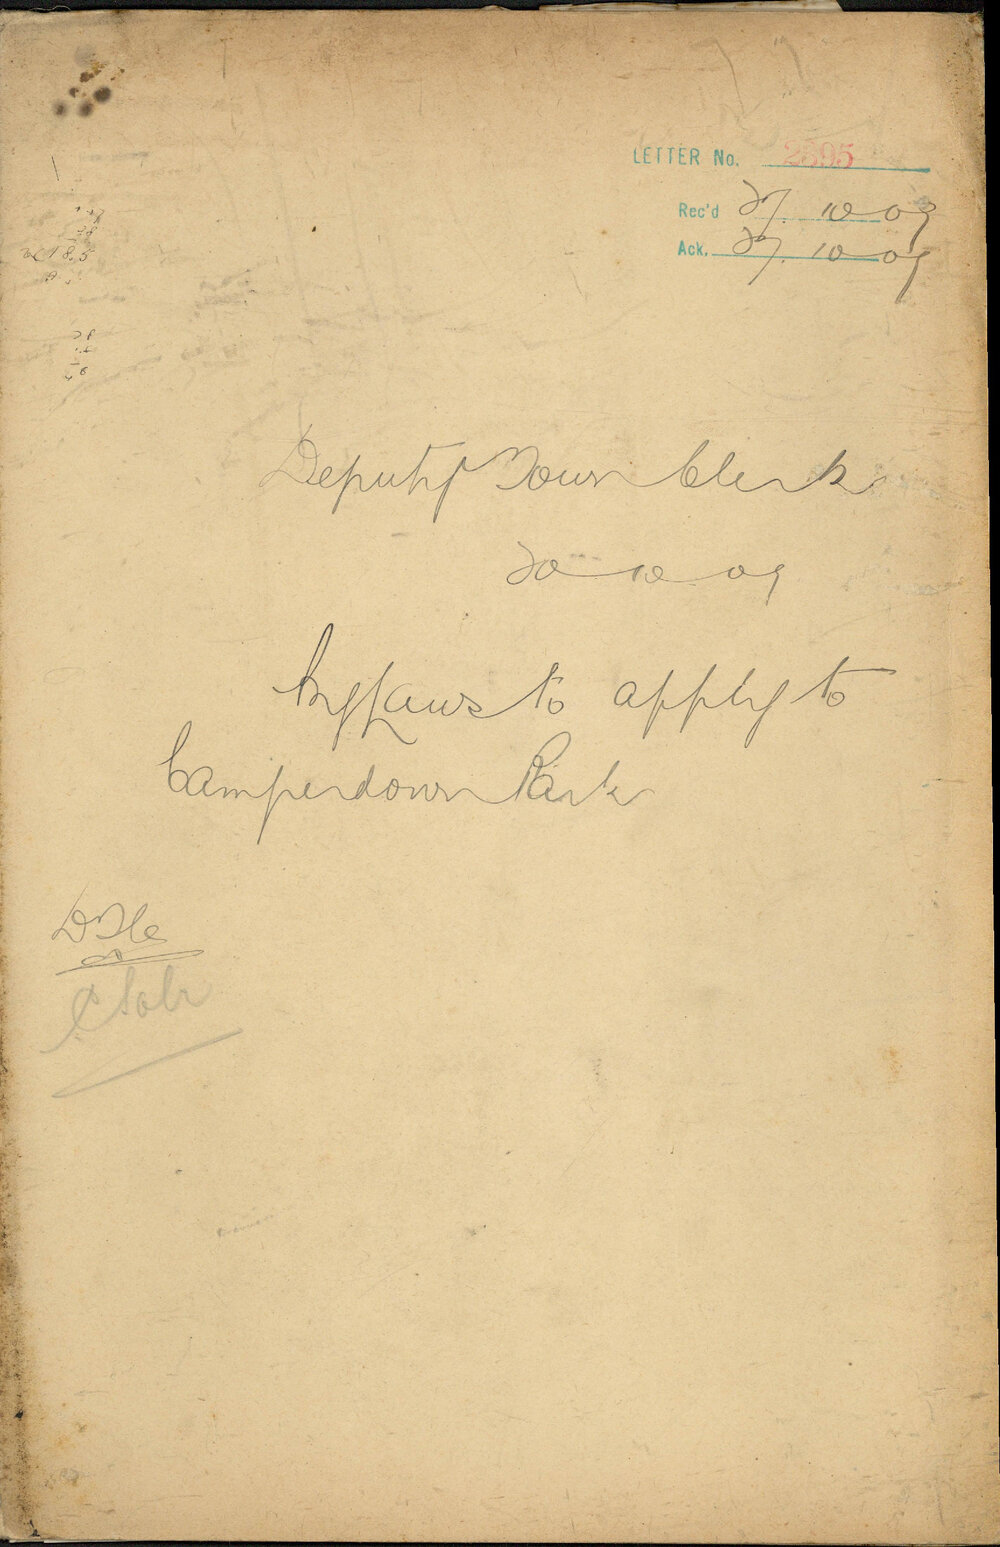 LETTER No. 2595
Rec'd 27. 10 09
Ack. 27. 10 09
Deputy Town Clerk
20 10 09
By Laws to apply to
Camperdown Park